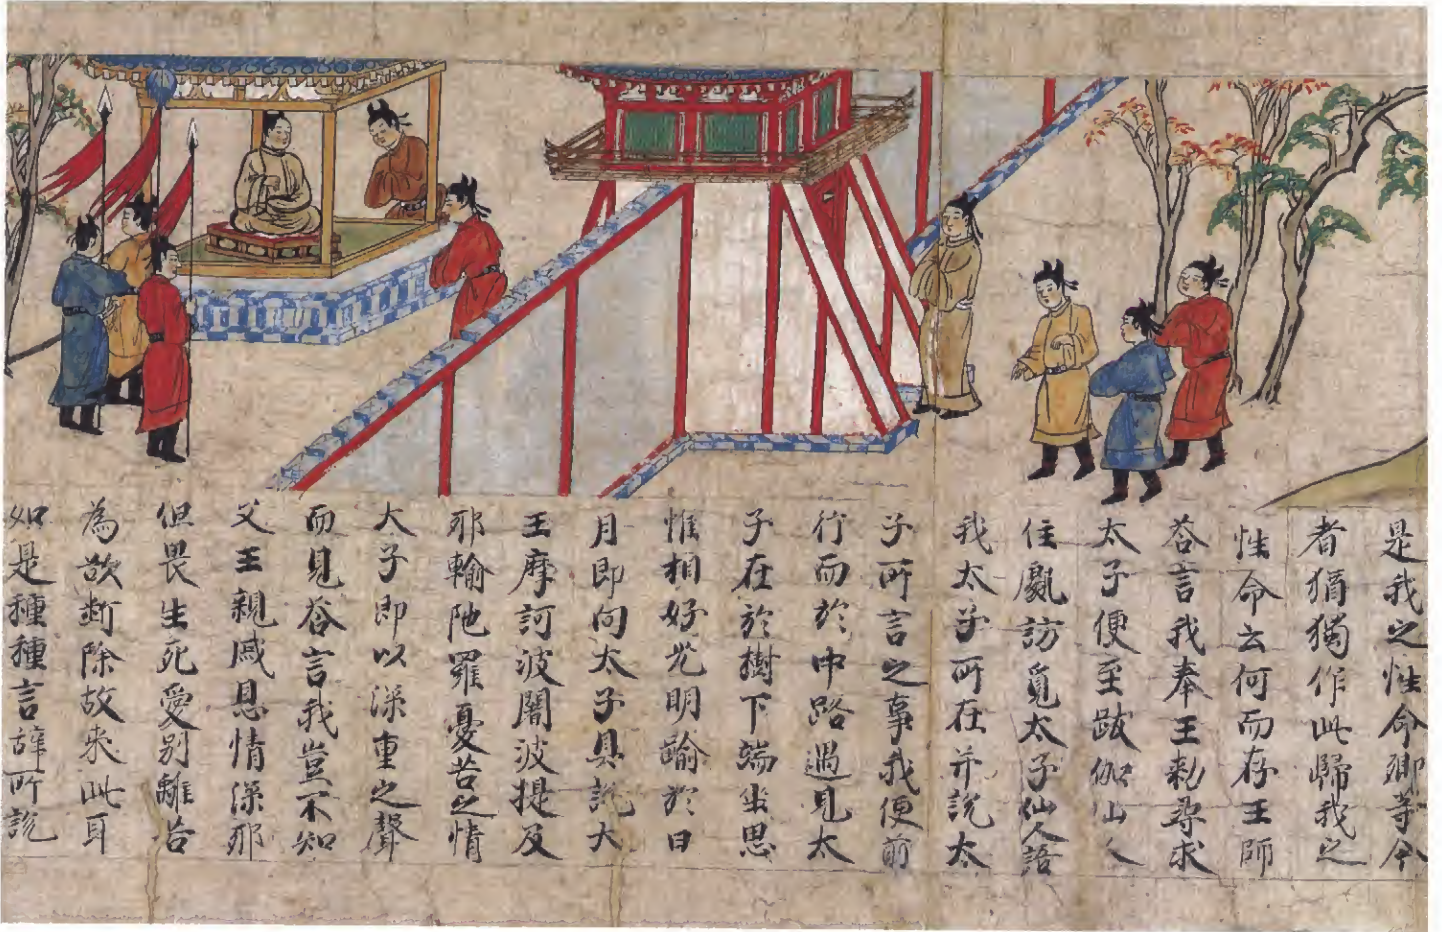 是我之性命卿等今
者猶獨作此歸我之
性命云何而存王師
荅言我奉王勑尋求
太子便至跋伽山人
住處訪覓太子仙人語
我太子所在并說太
子所言之事我便前
行而於中路遇見太
子在於樹下端坐思
惟相好光明踰於日
月即向太子具說大
王摩訶波闍波提及
耶輸陁羅憂苦之情
大子即以深重之聲
而見荅言我豈不知
父王親戚恩情深耶
但畏生死愛別離苦
為欲斷除故来此耳
如是種種言辞所說